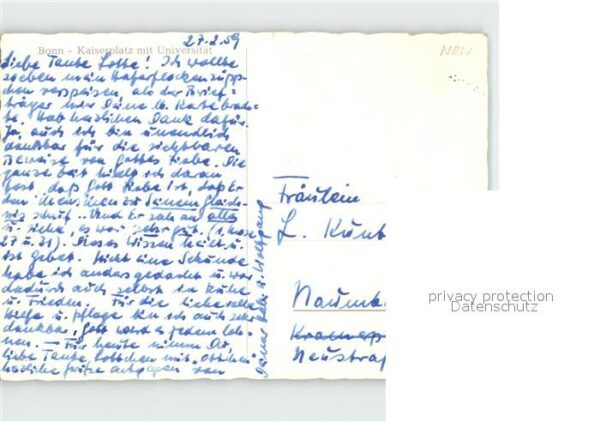 27.2.59
Bonn - Kaiserplatz mit Universität
Liebe Tante Lotte! Ich wollte
soeben mein Haferflockensüpp-
chen verspeisen, als der Brief-
träger mir Deine lb. Karte brach-
te. Hab herzlichen Dank dafür.
Ja, auch ich bin unendlich
dankbar für die sichtbaren
Beweise von Gottes Liebe. Die
ganze Zeit hielt ich daran
fest, daß Gott Liebe ist, daß Er
den Menschen zu Seinem Gleich-
nis schuf. Und Er sah an alles
u. siehe, es war sehr gut. (1. Mose
27 u. 31). Dieses Wissen heilt u.
ist Gebet. Nicht eine Sekunde
habe ich anders gedacht u. war
dadurch auch selbst in Ruhe
u. Frieden. Für die liebevolle
Hilfe u. Pflege bin ich auch sehr
dankbar, Gott wird es jedem loh-
nen. — Für heute nimm Du,
liebe Tante Lottchen mit
herzliche Grüße entgegen von
Deiner u. Wolfgang
Fräulein
L. Kunt
Naumb
Neustraß
privacy protection
Datenschutz